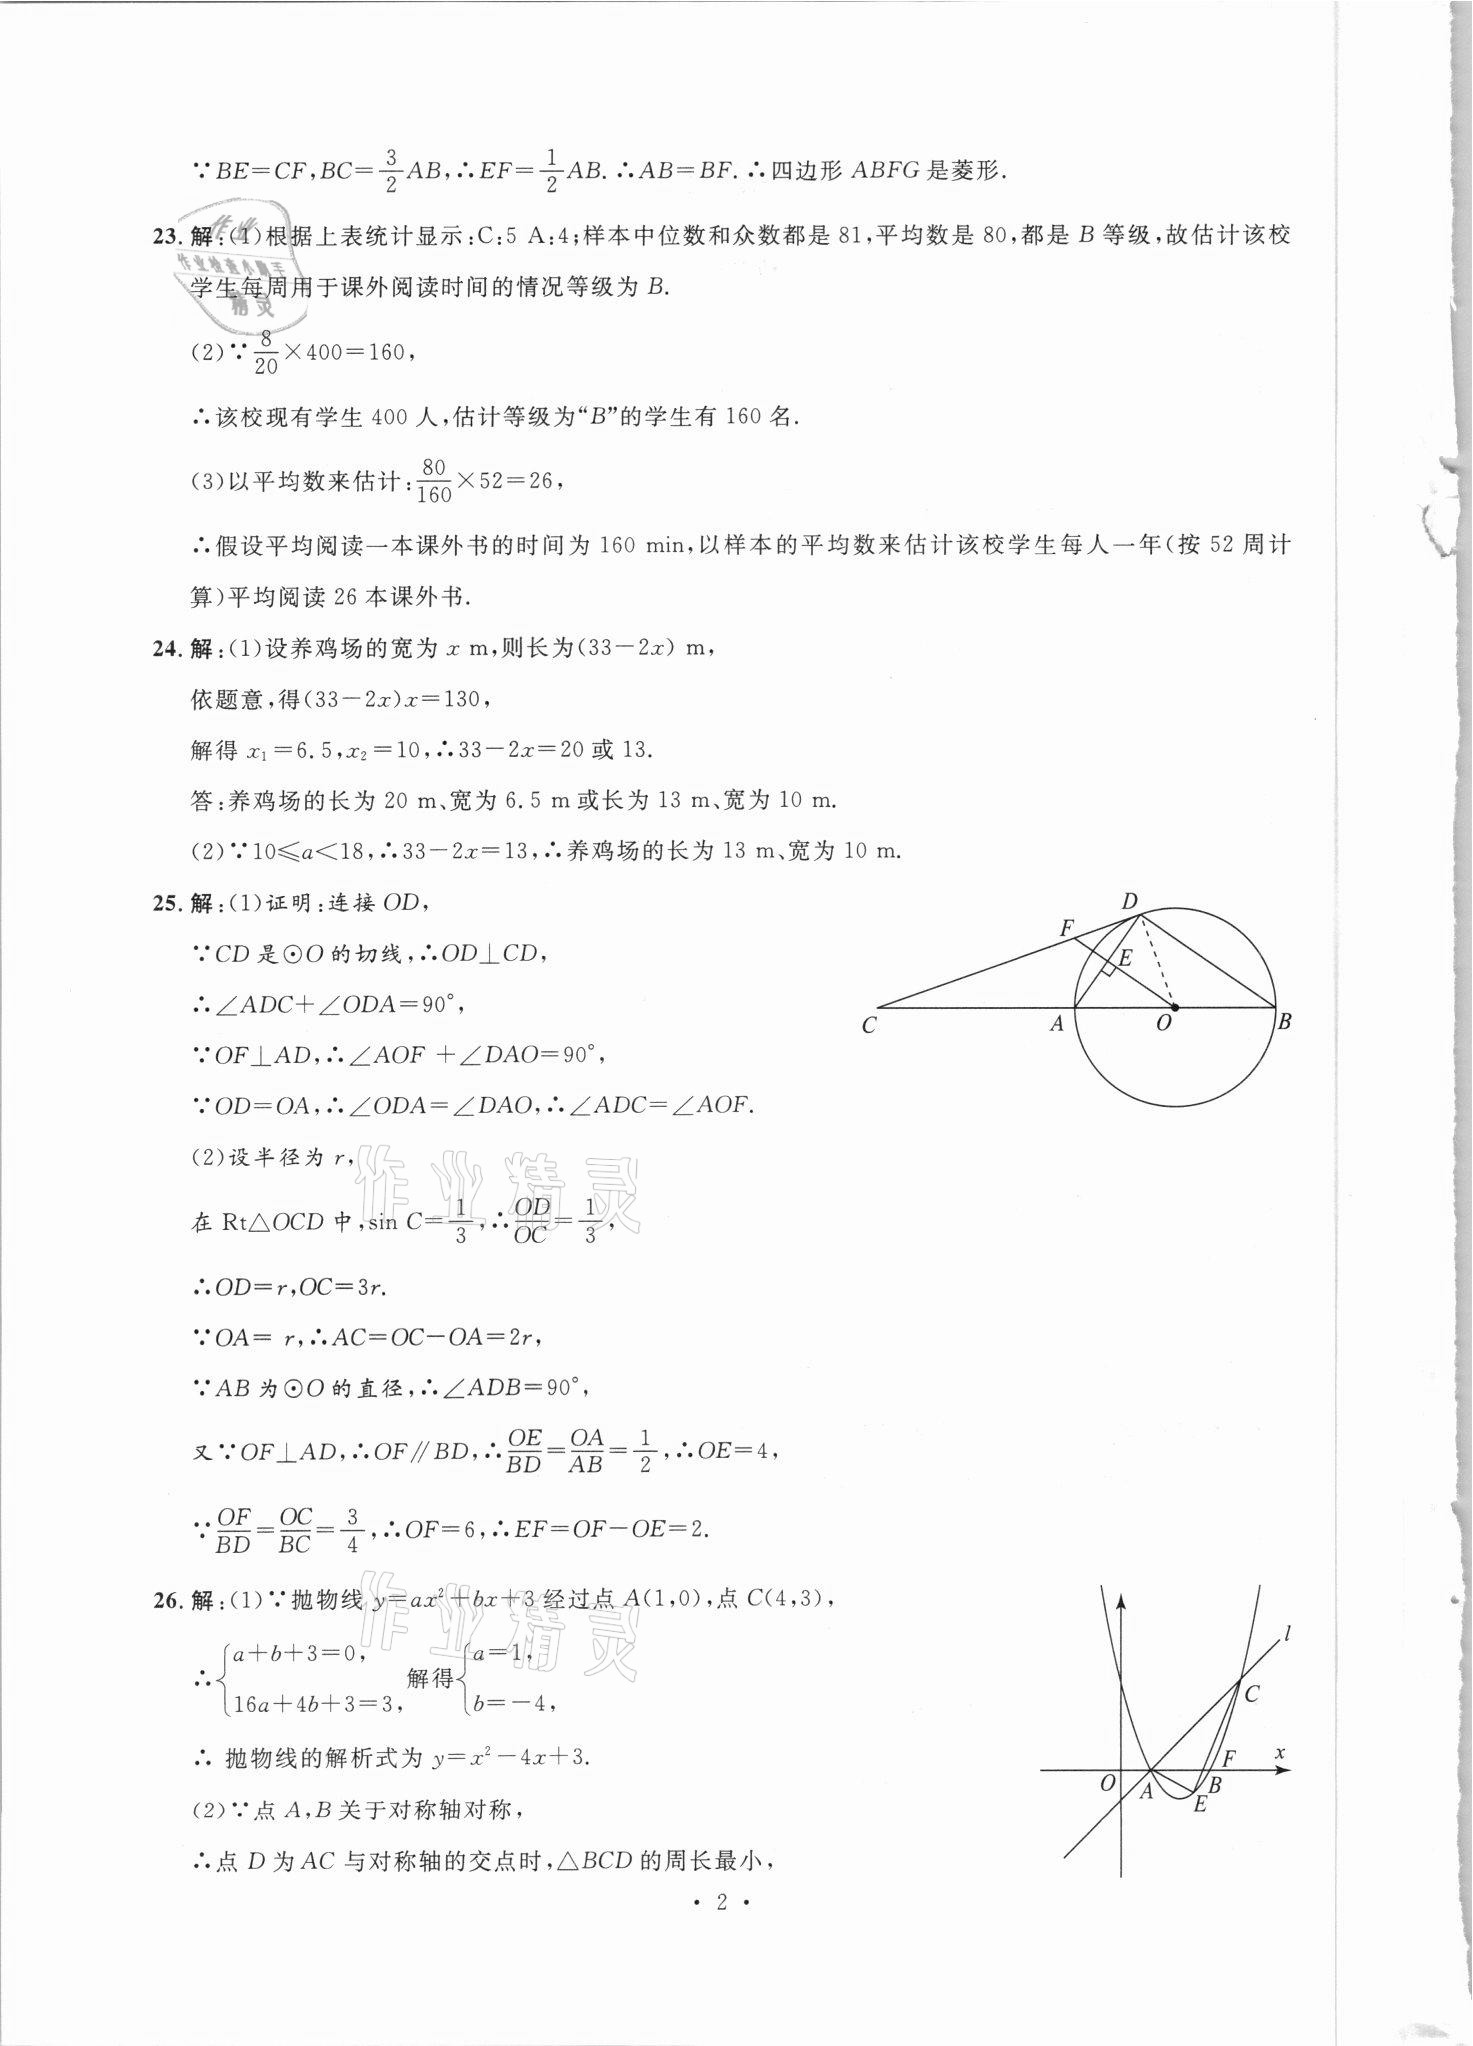 ∵BE=CF,BC=3/2AB,∴EF=1/2AB.∴AB=BF.∴四边形ABFG是菱形.
23.解:(1)根据上表统计显示:C:5 A:4;样本中位数和众数都是81,平均数是80,都是B等级,故估计该校
学生每周用于课外阅读时间的情况等级为B.
(2)∵8/20×400=160,
∴该校现有学生400人,估计等级为“B”的学生有160名.
(3)以平均数来估计:80/160×52=26,
∴假设平均阅读一本课外书的时间为160 min,以样本的平均数来估计该校学生每人一年(按52周计
算)平均阅读26本课外书.
24.解:(1)设养鸡场的宽为x m,则长为(33-2x) m,
依题意,得(33-2x)x=130,
解得x₁=6.5,x₂=10,∴33-2x=20或13.
答:养鸡场的长为20 m、宽为6.5 m或长为13 m、宽为10 m.
(2)∵10≤a<18,∴33-2x=13,∴养鸡场的长为13 m、宽为10 m.
25.解:(1)证明:连接OD,
∵CD是⊙O的切线,∴OD⊥CD,
∴∠ADC+∠ODA=90°,
∵OF⊥AD,∴∠AOF+∠DAO=90°,
∵OD=OA,∴∠ODA=∠DAO,∴∠ADC=∠AOF.
D
F
E
C
A
O
B
(2)设半径为r,
在Rt△OCD中,sin C=1/3,∴OD/OC=1/3,
∴OD=r,OC=3r.
∵OA= r,∴AC=OC-OA=2r,
∵AB为⊙O的直径,∴∠ADB=90°,
又∵OF⊥AD,∴OF∥BD,∴OE/BD=OA/AB=1/2,∴OE=4,
∵OF/BD=OC/BC=3/4,∴OF=6,∴EF=OF-OE=2.
26.解:(1)∵抛物线y=ax²+bx+3经过点A(1,0),点C(4,3),
∴{a+b+3=0, 解得{a=1,
16a+4b+3=3, b=-4,
∴ 抛物线的解析式为y=x²-4x+3.
(2)∵点A,B关于对称轴对称,
∴点D为AC与对称轴的交点时,△BCD的周长最小,
l
C
F
x
O
A
B
E
· 2 ·
作业
作业检查小助手
精灵
作业精灵
作业精灵